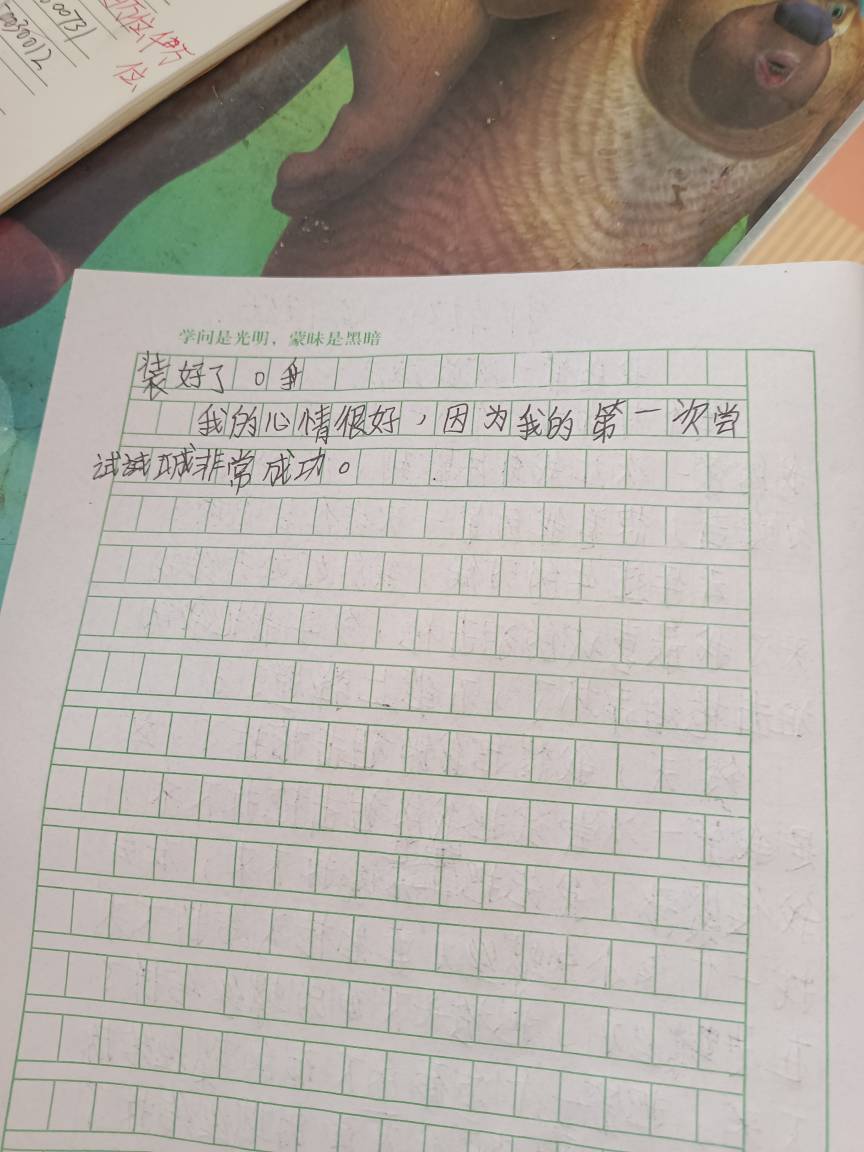 000731
0030012
位
学问是光明，蒙昧是黑暗
装好了。
我的心情很好，因为我的第一次尝
试非常成功。